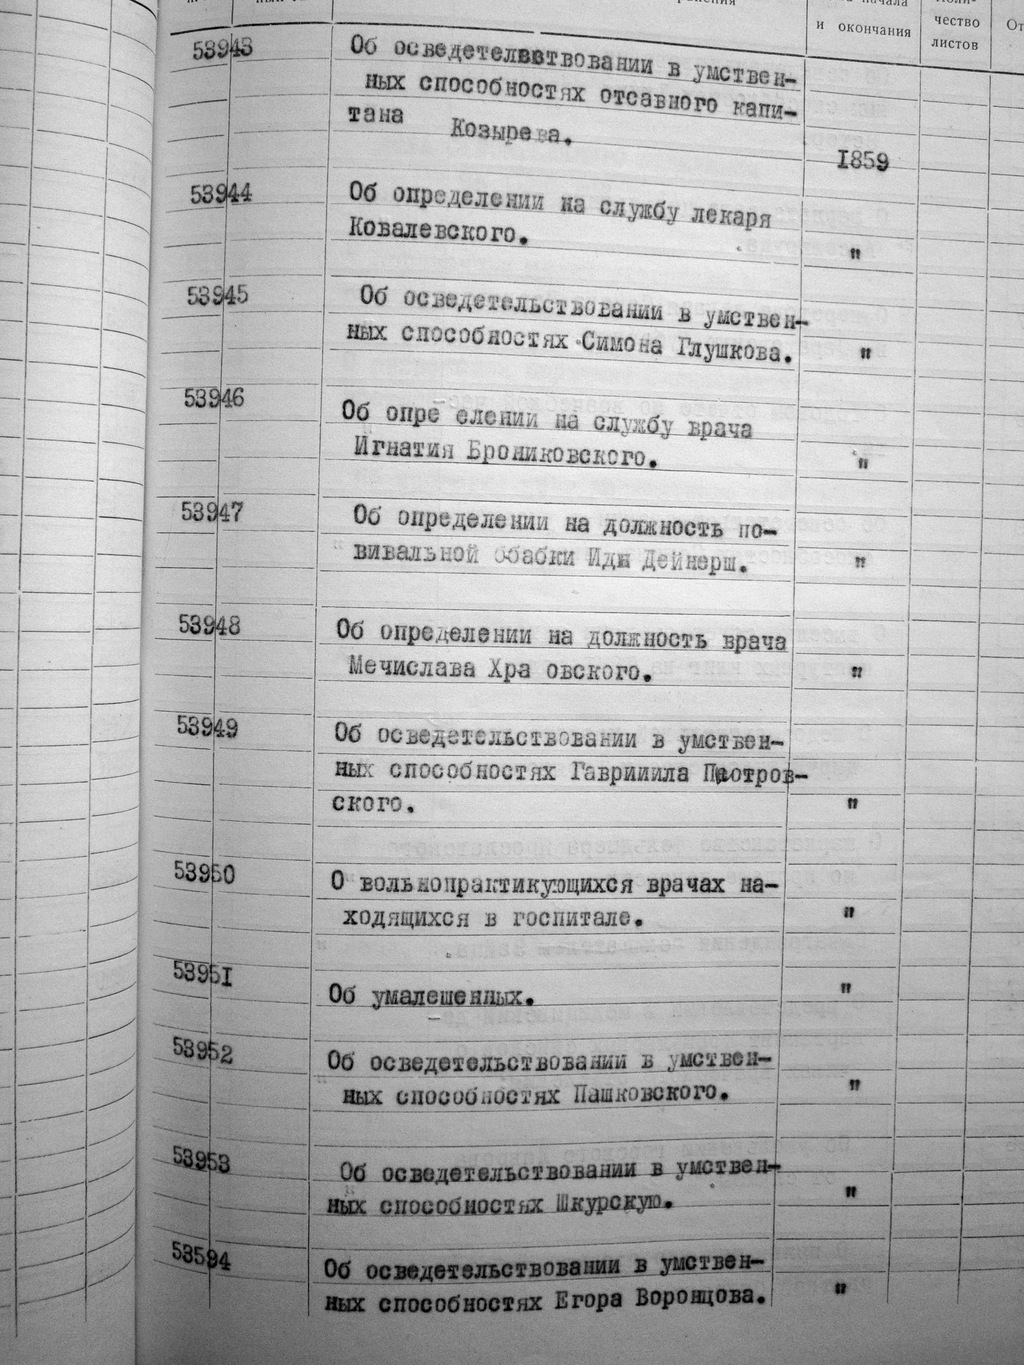 начала
и окончания
чество
листов
От
53943 Об осведетелвствовании в умствен-
ных способностях отсавного капи-
тана Козырева.
1859
53944 Об определении на службу лекаря
Ковалевского. "
53945 Об осведетельствовании в умствен-
ных способностях Симона Глушкова. "
53946 Об опре елении на службу врача
Игнатия Брониковского. "
53947 Об определении на должность по-
вивальной обабки Иды Дейнерш. "
53948 Об определении на должность врача
Мечислава Хра овского. "
53949 Об осведетельствовании в умствен-
ных способностях Гаврииила Пиотров-
ского. "
53950 О вольнопрактикующихся врачах на-
ходящихся в госпитале. "
53951 Об умалешенных. "
53952 Об осведетельствовании в умствен-
ных способностях Пашковского. "
53953 Об осведетельствовании в умствен-
ных способностях Шкурскую. "
53594 Об осведетельствовании в умствен-
ных способностях Егора Воронцова. "